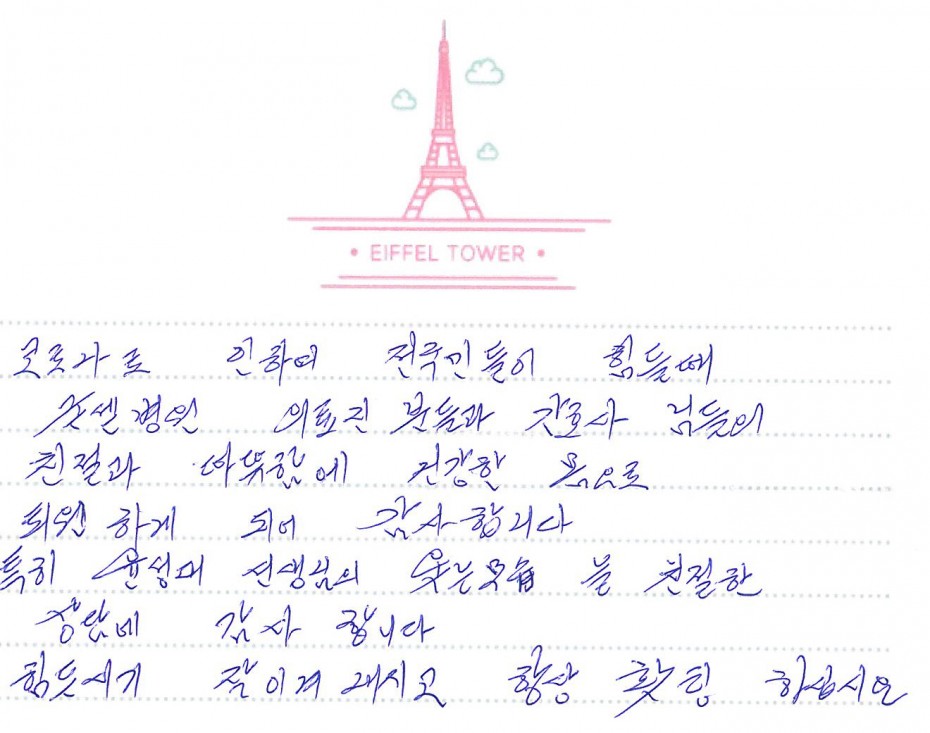 • EIFFEL TOWER •
코로나로 인하여 전국민들이 힘들때
굿셀병원 의료진 분들과 간호사 님들의
친절과 따뜻함에 건강한 몸으로
퇴원 하게 되어 감사합니다
특히 윤성대 선생님의 웃는모습 을 친절한
상담에 감사 합니다
힘든시기 잘 이겨 내시고 항상 홧팅 하십시요